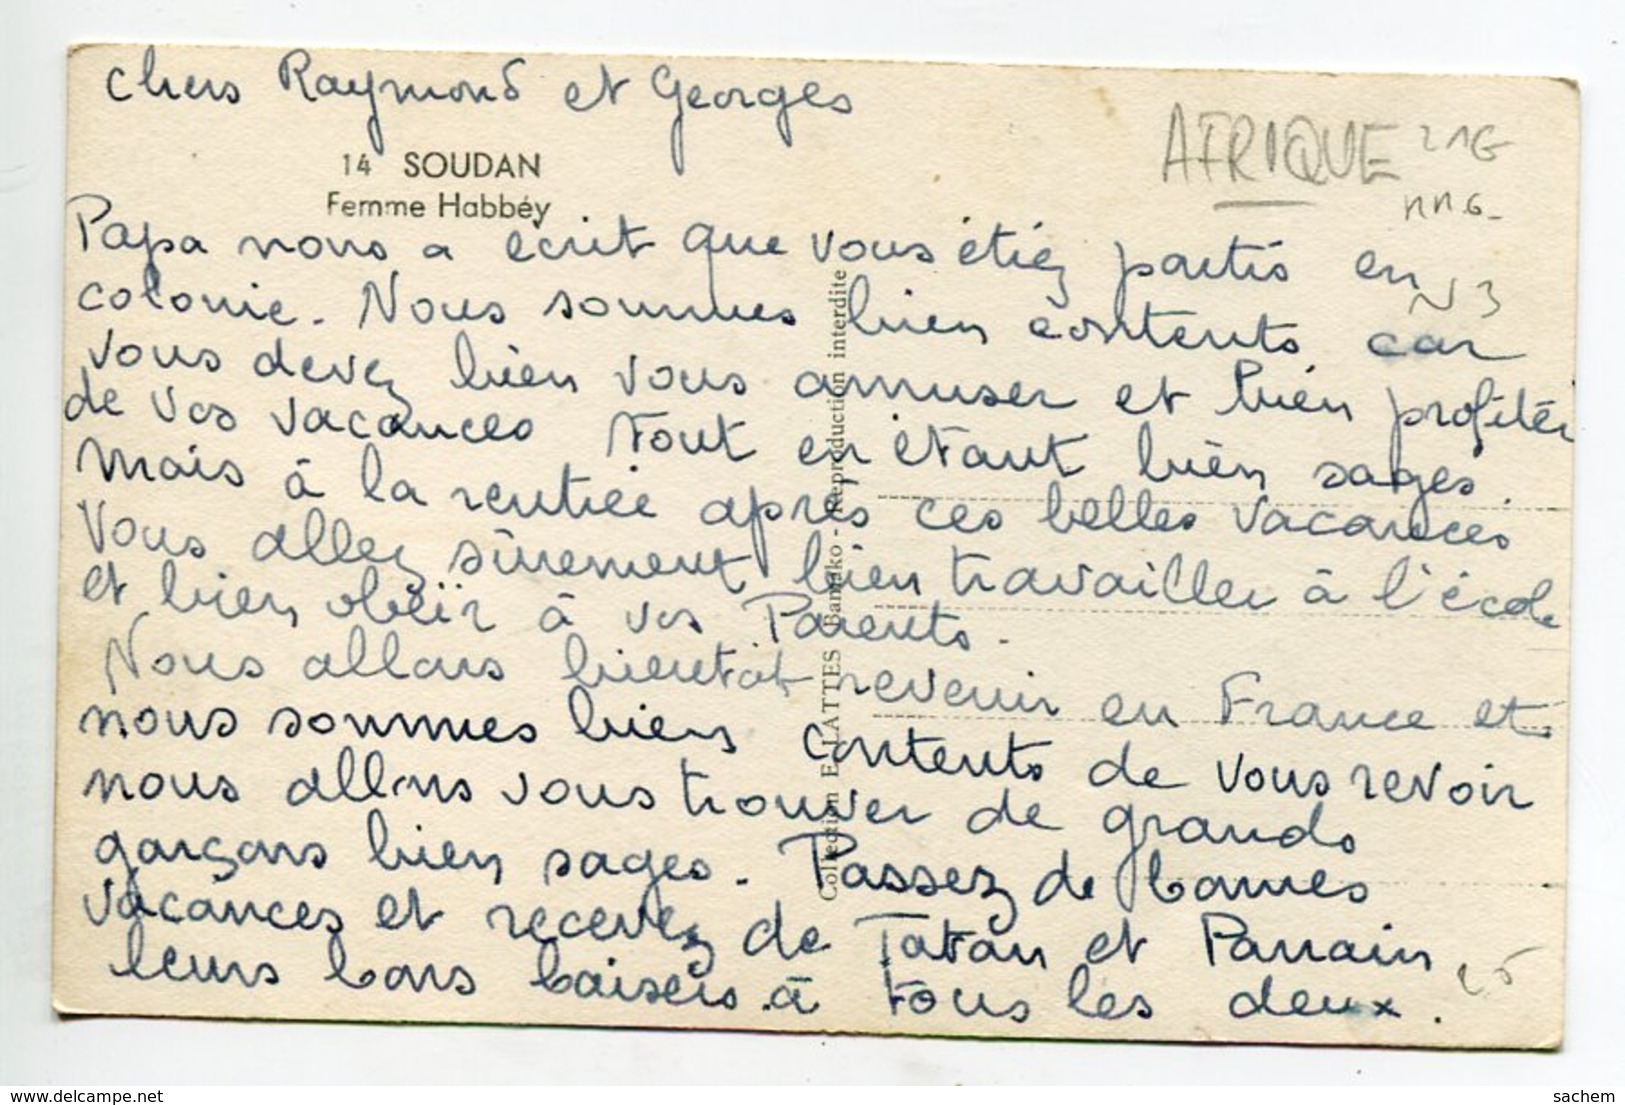 chers Raymond et Georges
14 SOUDAN
Femme Habbéy
AFRIQUE
Papa nous a écrit que vous étiez partis en
colonie. Nous sommes bien contents car
vous devez bien vous amuser et bien profiter
de vos vacances tout en étant bien sages.
Mais à la rentrée après ces belles vacances
vous allez sûrement bien travailler à l'école
et bien obéir à vos Parents.
Nous allons bientôt revenir en France et
nous sommes bien contents de vous revoir
nous allons vous trouver de grands
garçons bien sages. Passez de bonnes
vacances et recevez de Tatan et Parrain
leurs bons baisers à tous les deux.
Collection E. LATTES Bamako - Reproduction interdite
delcampe.net
sachem